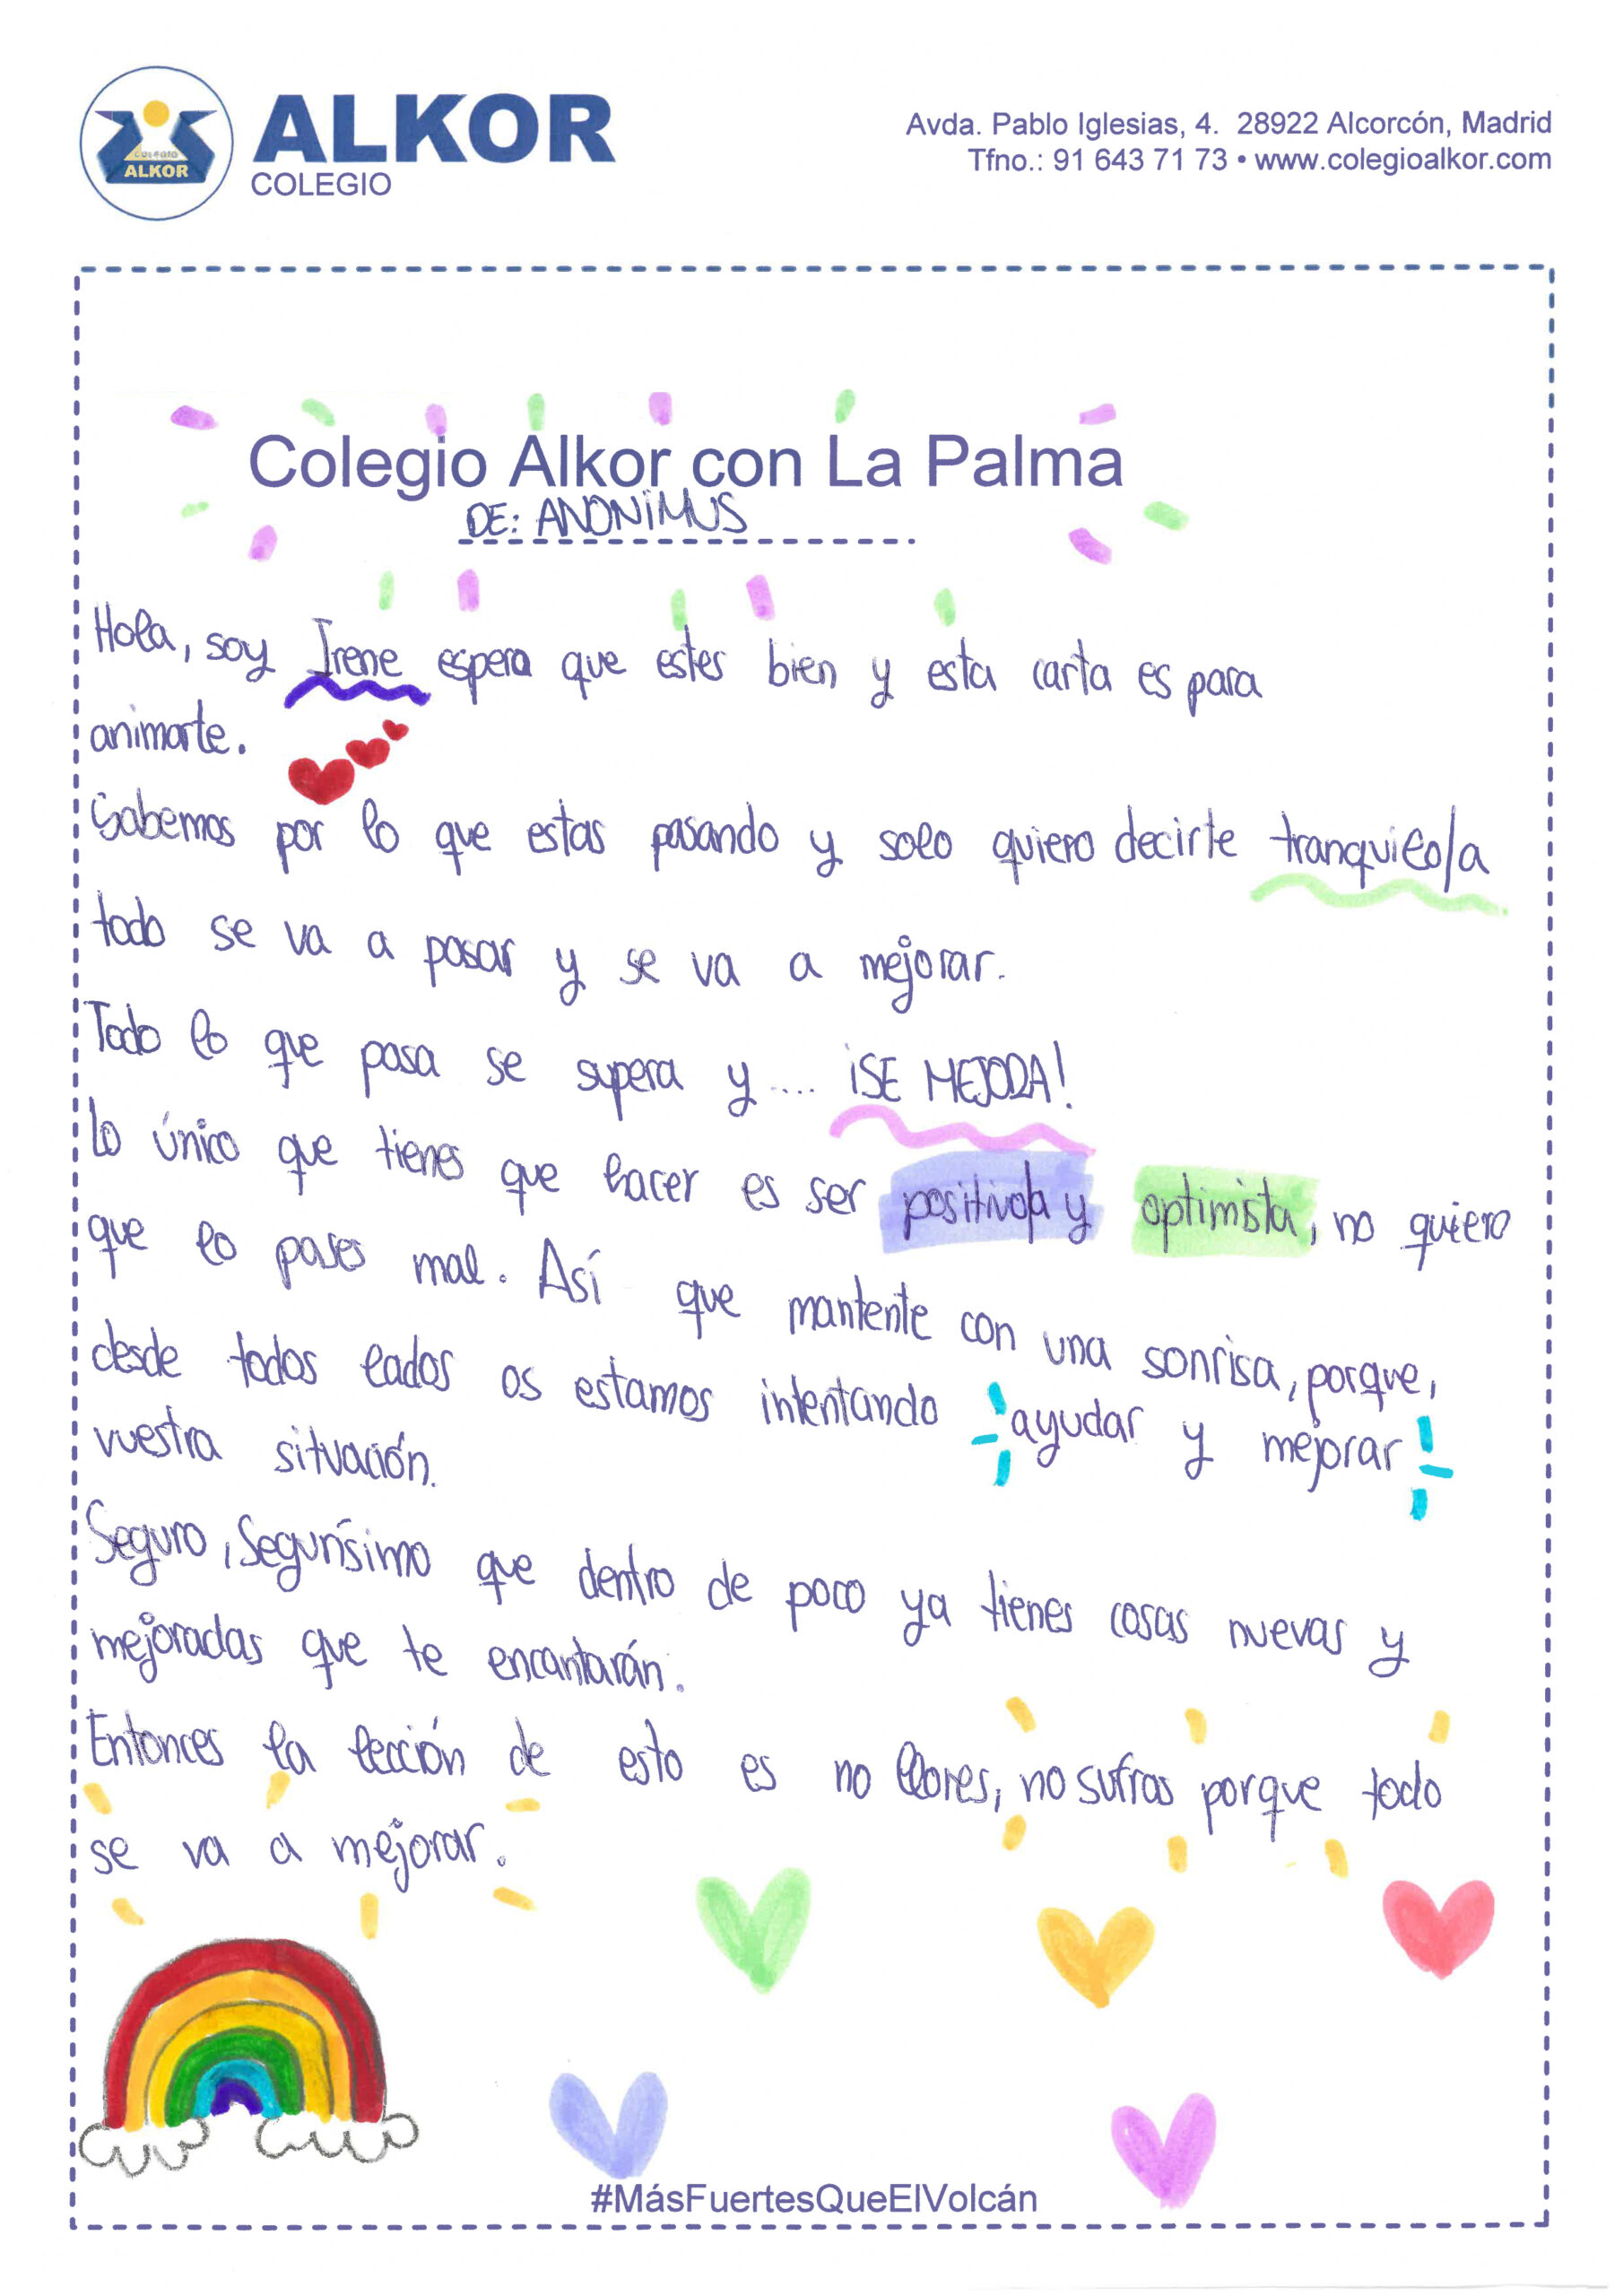 ALKOR
COLEGIO
COLEGIO
ALKOR
Avda. Pablo Iglesias, 4. 28922 Alcorcón, Madrid
Tfno.: 91 643 71 73 • www.colegioalkor.com
Colegio Alkor con La Palma
DE: ANONIMUS
Hola, soy Irene espera que estes bien y esta carta es para
animarte.
Sabemos por lo que estas pasando y solo quiero decirte tranquilo/a
todo se va a pasar y se va a mejorar.
Todo lo que pasa se supera y .... ¡SE MEJORA!
Lo único que tienes que hacer es ser positivo/a y optimista, no quiero
que lo pases mal. Así que mantente con una sonrisa, porque,
desde todos lados os estamos intentando ¡ayudar y mejorar!
vuestra situación.
Seguro, Segurísimo que dentro de poco ya tienes cosas nuevas y
mejoradas que te encantarán.
Entonces la lección de esto es no llores, no sufras porque todo
se va a mejorar.
#MásFuertesQueElVolcán